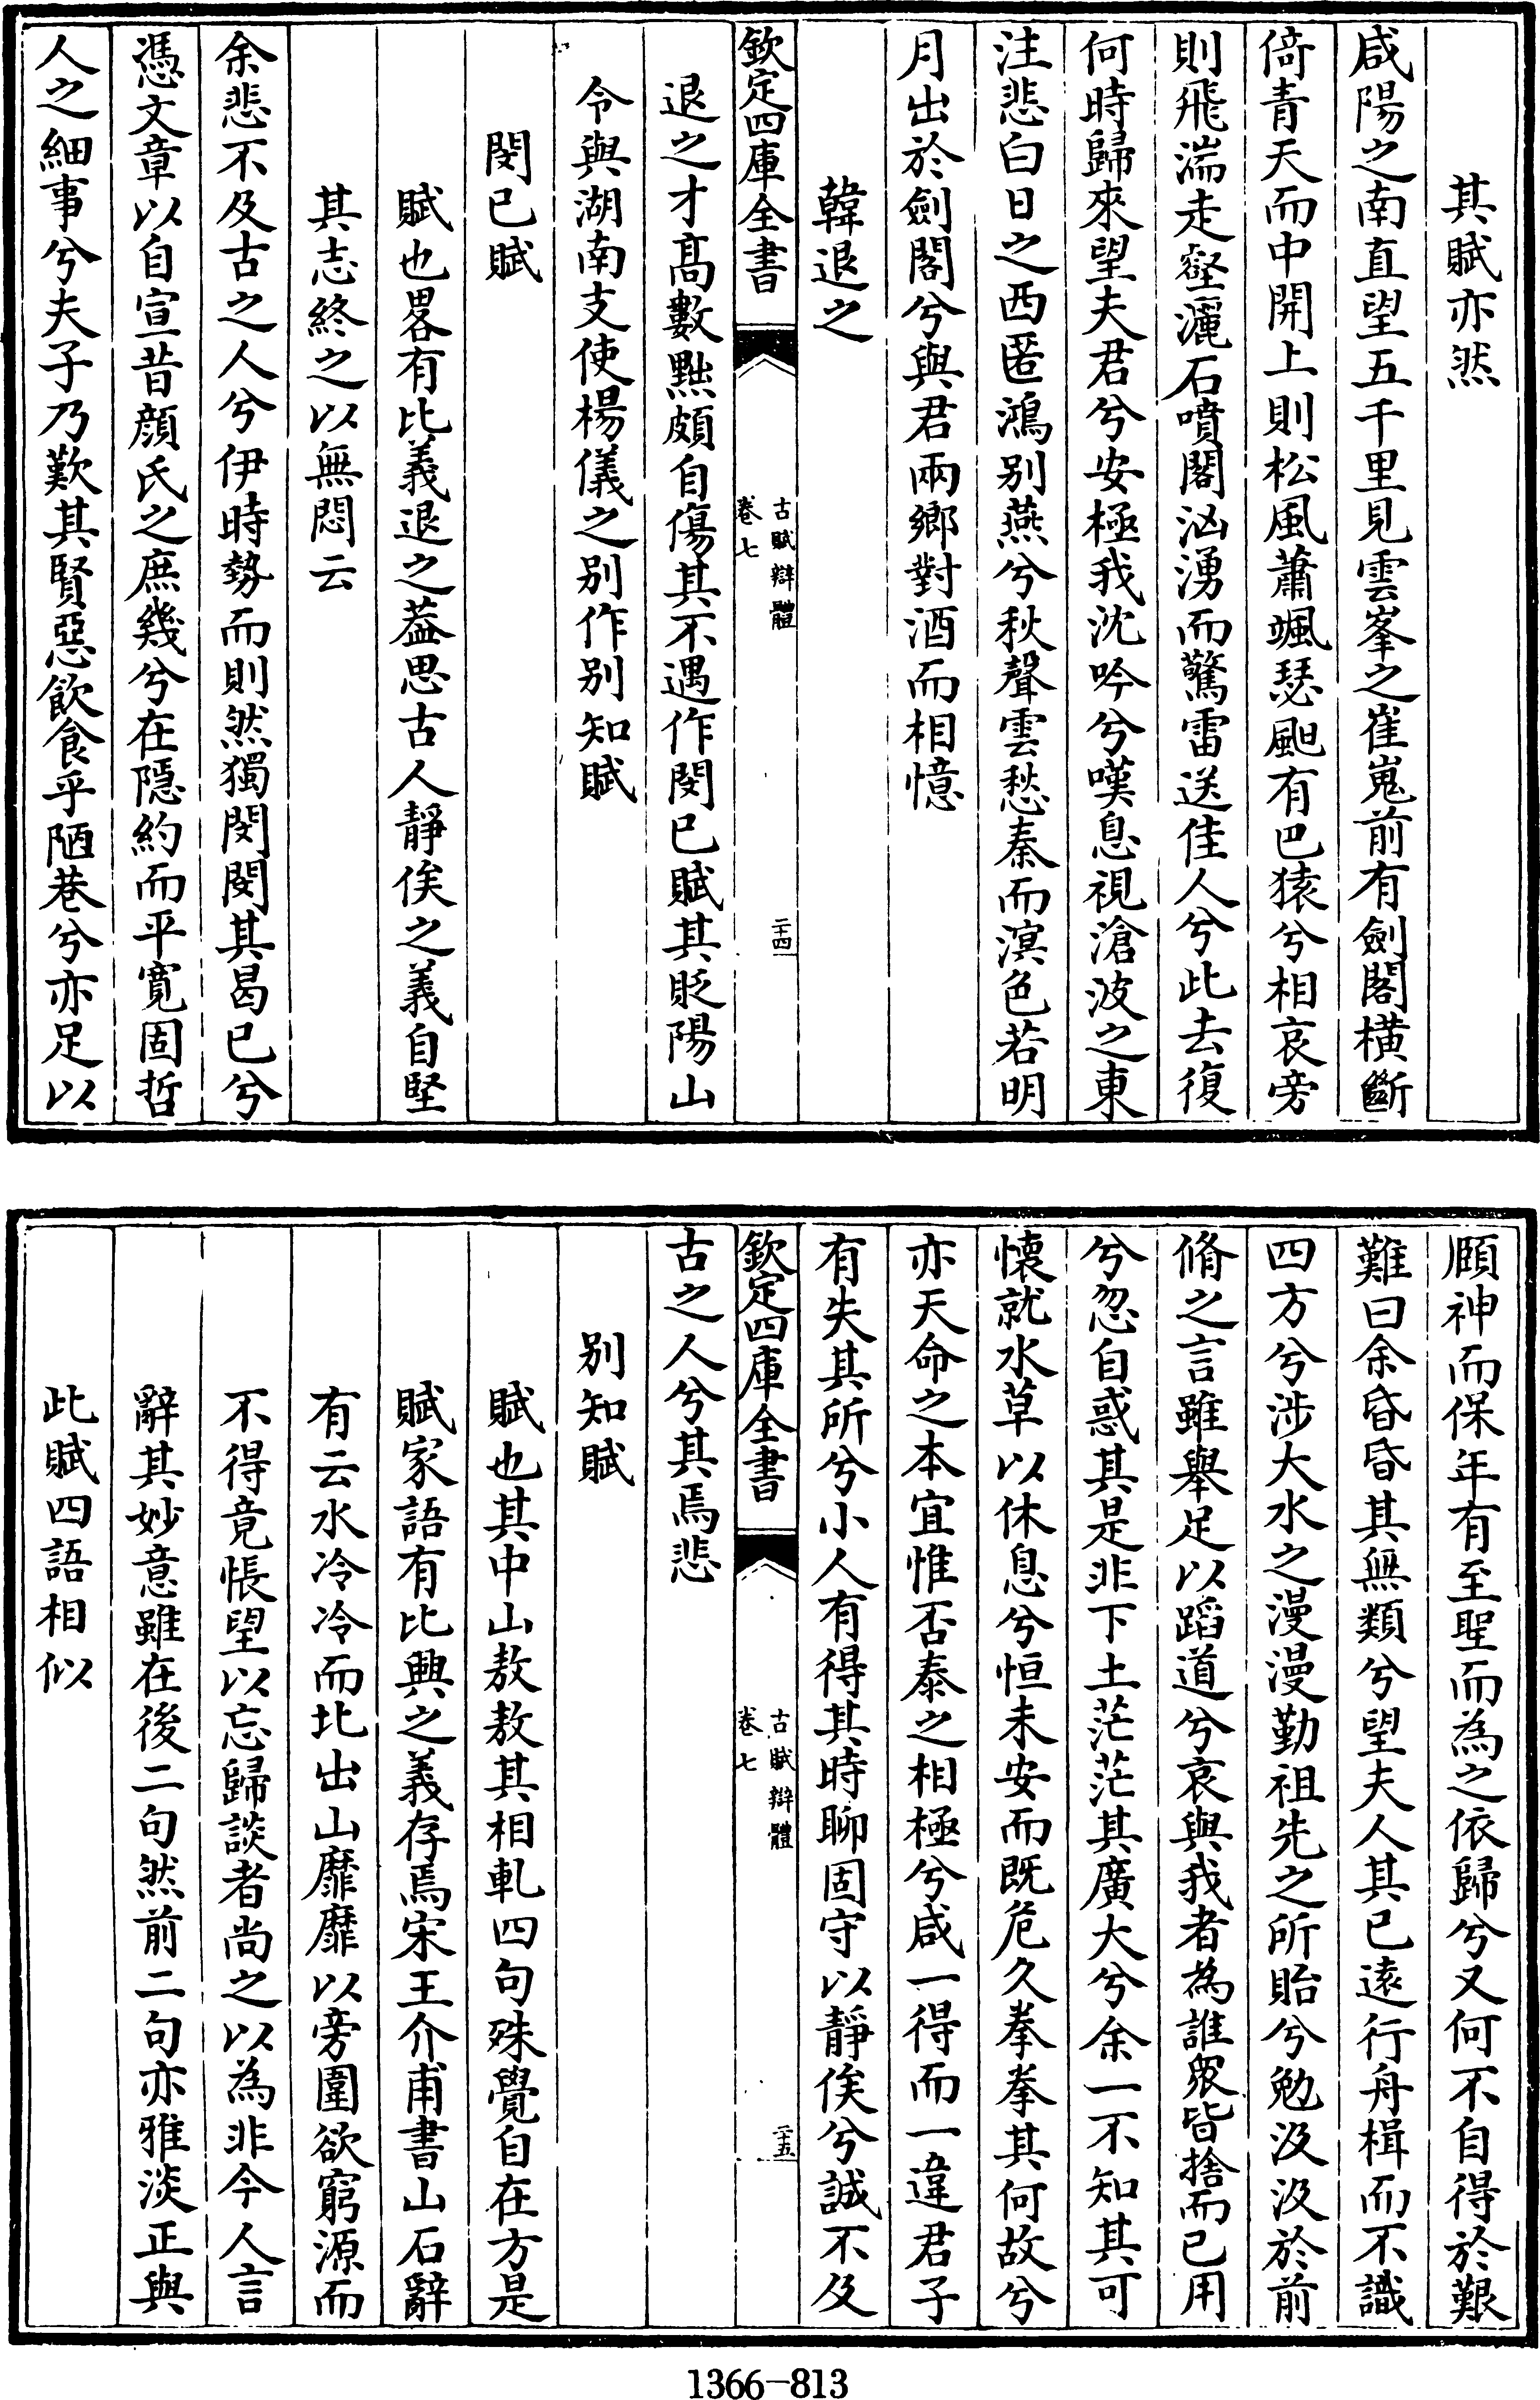 其賦亦然
咸陽之南直望五千里見雲峯之崔嵬前有劍閣橫斷
倚青天而中開上則松風蕭颯瑟䬍有巴猿兮相哀旁
則飛湍走壑灑石噴閣洶湧而驚雷送佳人兮此去復
何時歸來望夫君兮安極我沈吟兮嘆息視滄波之東
注悲白日之西匿鴻别燕兮秋聲雲愁秦而溟色若明
月出於劍閣兮與君兩鄉對酒而相憶
韓退之
欽定四庫全書
古賦辯體
卷七
二十四
退之才高數黜頗自傷其不遇作閔已賦其貶陽山
令與湖南支使楊儀之别作别知賦
閔已賦
賦也畧有比義退之葢思古人靜俟之義自堅
其志終之以無悶云
余悲不及古之人兮伊時勢而則然獨閔閔其曷已兮
憑文章以自宣昔顔氏之庶幾兮在隱約而平寛固哲
人之細事兮夫子乃歎其賢惡飲食乎陋巷兮亦足以
頤神而保年有至聖而為之依歸兮又何不自得於艱
難曰余昏昏其無類兮望夫人其已遠行舟楫而不識
四方兮涉大水之漫漫勤祖先之所貽兮勉汲汲於前
脩之言雖舉足以蹈道兮哀與我者為誰衆皆捨而已用
兮忽自惑其是非下土茫茫其廣大兮余一不知其可
懐就水草以休息兮恒未安而既危久拳拳其何故兮
亦天命之本宜惟否泰之相極兮咸一得而一違君子
有失其所兮小人有得其時聊固守以靜俟兮誠不及
欽定四庫全書
古賦辯體
卷七
二十五
古之人兮其焉悲
别知賦
賦也其中山敖敖其相軋四句殊覺自在方是
賦家語有比興之義存焉宋王介甫書山石辭
有云水泠泠而北出山靡靡以旁圍欲窮源而
不得竟悵望以忘歸談者尚之以為非今人言
辭其妙意雖在後二句然前二句亦雅淡正與
此賦四語相似
1366-813